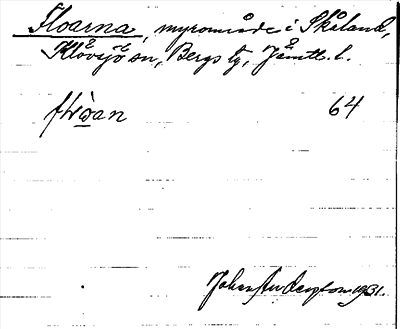 Floarna, myrområde i Skåland,
Klövsjö sn, Bergs tg, Jämtl. l.
64
John Anderson 1931.